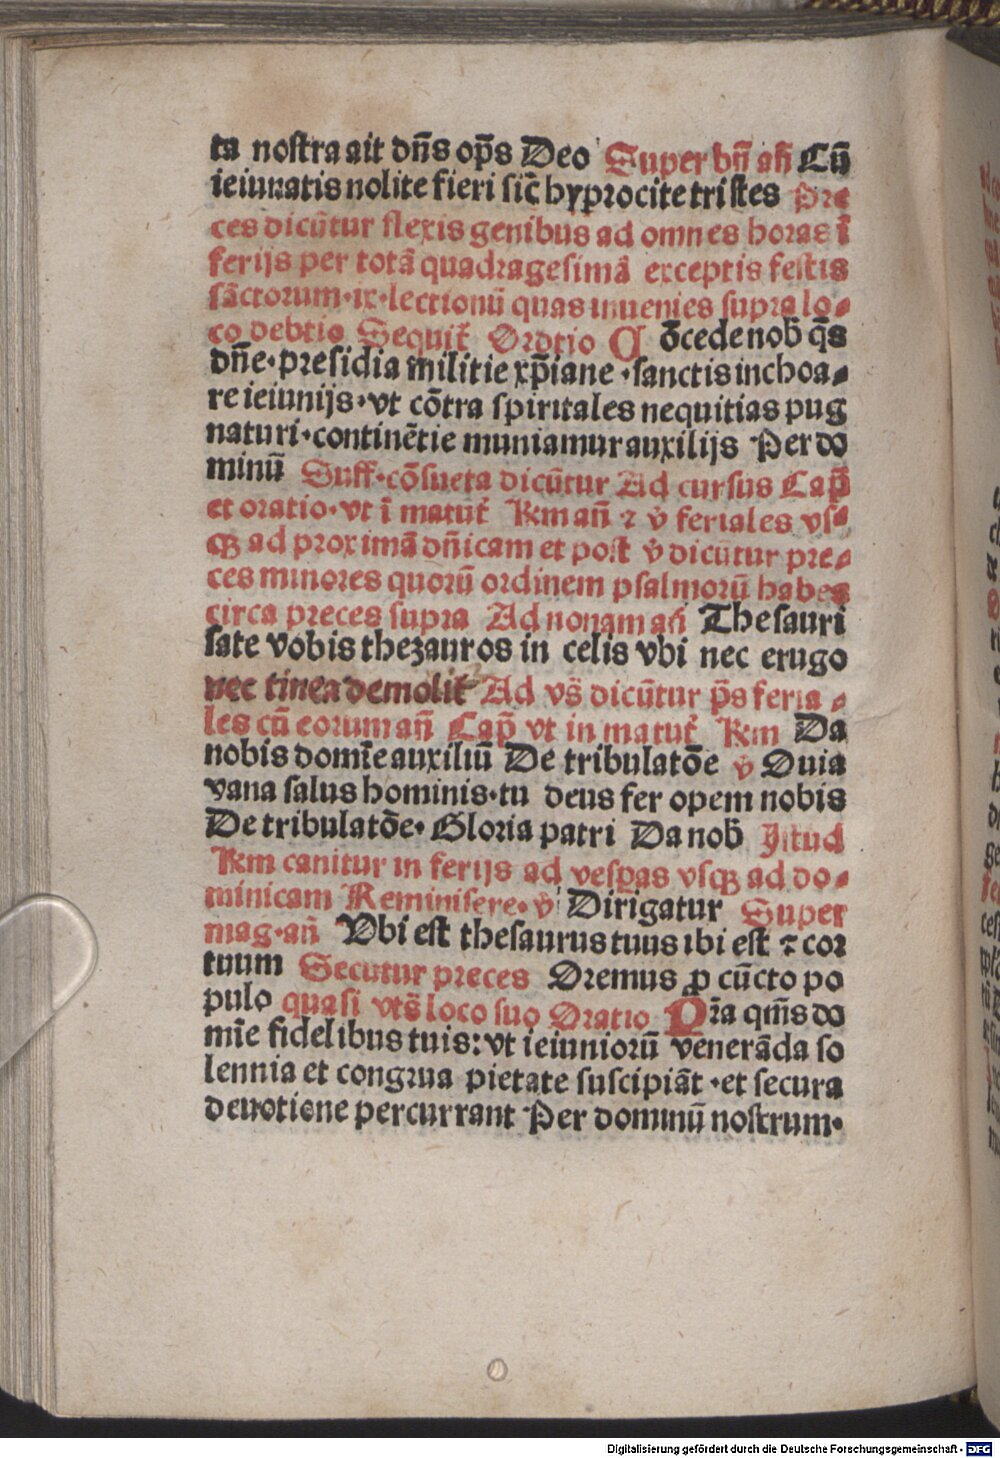 ta nostra ait dn̄s op̄s Deo Super bn̄ an̄ Cū
ieiunatis nolite fieri sic̄ hyprocite tristes Pre
ces dicūtur flexis genibus ad omnes horas ī
ferijs per totā quadragesimā exceptis festis
sāctorum·ix·lectionū quas inuenies supra lo⸗
co debtio Sequit̄ Ordtio C ōcede nob̄ q̄s
dn̄e·presidia militie xp̄iane·sanctis inchoa⸗
re ieiunijs·vt cōtra spiritales nequitias pug
naturi·continētie muniamur auxilijs Per do
minū Suff·cōsueta dicūtur Ad cursus Cap̄
et oratio·vt ī matut̄ Rm an̄ ⁊ v̄ feriales vs⸗
qꝫ ad proximā dn̄icam et post v̄ dicūtur pre⸗
ces minores quorū ordinem psalmorū habes
circa preces supra Ad nonam an̄ Thesauri
sate vobis thezauros in celis vbi nec erugo
nec tinea demolit̄ Ad vs̄ dicūtur p̄s feria⸗
les cū eorum an̄ Cap̄ vt in matut̄ Rm Da
nobis domīe auxiliū De tribulatōe v̄ Quia
vana salus hominis·tu deus fer opem nobis
De tribulatōe·Gloria patri Da nob̄ Istud
Rm canitur in ferijs ad vesꝑas vsqꝫ ad do⸗
minicam Reminisere·v̄ Dirigatur Super
mag·an̄ Vbi est thesaurus tuus ibi est ⁊ cor
tuum Secutur preces Oremus ꝓ cūcto po
pulo quasi vts̄ loco suo Oratio P r̄a qm̄s do
mīe fidelibus tuis: vt ieiuniorū venerāda so
lennia et congrua pietate suscipiāt·et secura
deuotione percurrant Per dominū nostrum·
Digitalisierung gefördert durch die Deutsche Forschungsgemeinschaft - DFG